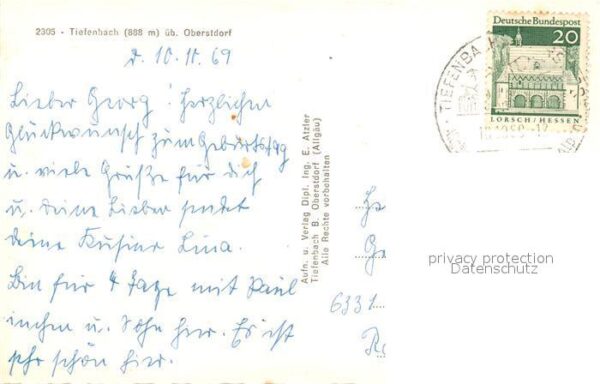 2305 - Tiefenbach (888 m) üb. Oberstdorf
d. 10.11.69
Lieber Georg! Herzlichen
Glückwunsch zum Geburtstag
u. viele Grüße für dich
u. deine Lieben sendet
deine Kusine Lina.
Bin für 4 Tage mit Paul
inchen u. Sohn hier. Es ist
sehr schön hier.
Aufn. u. Verlag Dipl. Ing. E. Atzler
Tiefenbach B. Oberstdorf (Allgäu)
Alle Rechte vorbehalten
Deutsche Bundespost
20
LORSCH/HESSEN
TIEFENBA
6331
privacy protection
Datenschutz